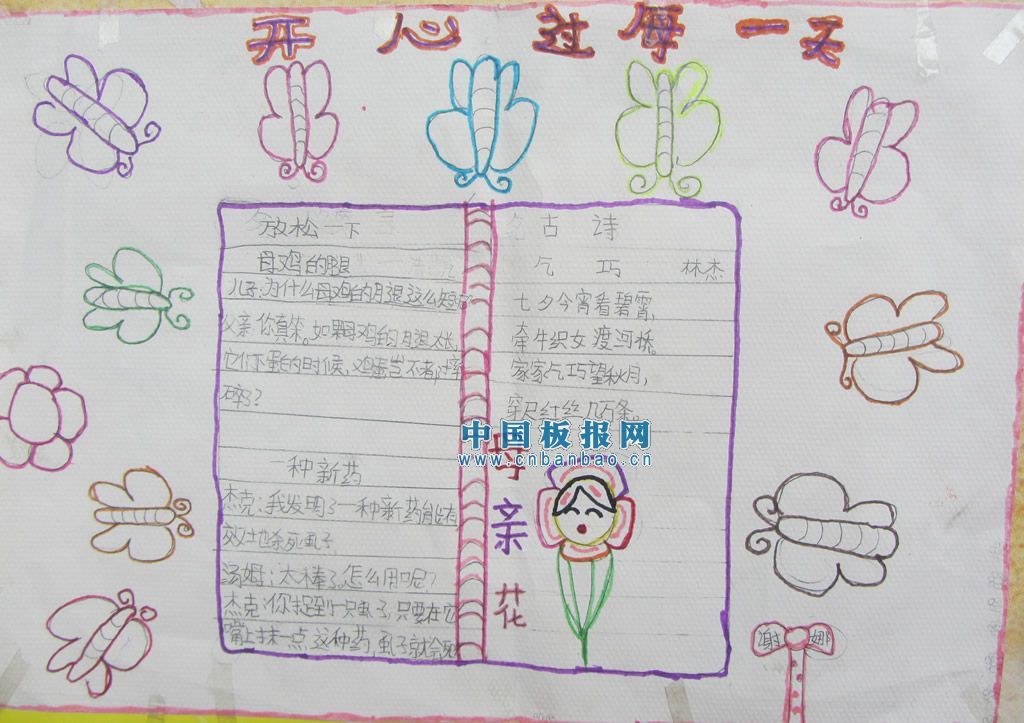 开心过每一天
放松一下
母鸡的腿
儿子:为什么母鸡的腿这么短
父亲:你真笨。如果母鸡的腿太长,
它们下蛋的时候,鸡蛋岂不都摔
碎了?
一种新药
杰克:我发明了一种新药能有
效地杀死虱子
汤姆:太棒了,怎么用呢?
杰克:你捉到一只虫子,只要在它
嘴上抹一点这种药,虱子就会死
古诗
乞巧 林杰
七夕今宵看碧霄,
牵牛织女渡河桥。
家家乞巧望秋月,
穿尽红丝几万条。
中国板报网
www.cnbanbao.cn
母亲花
谢娜